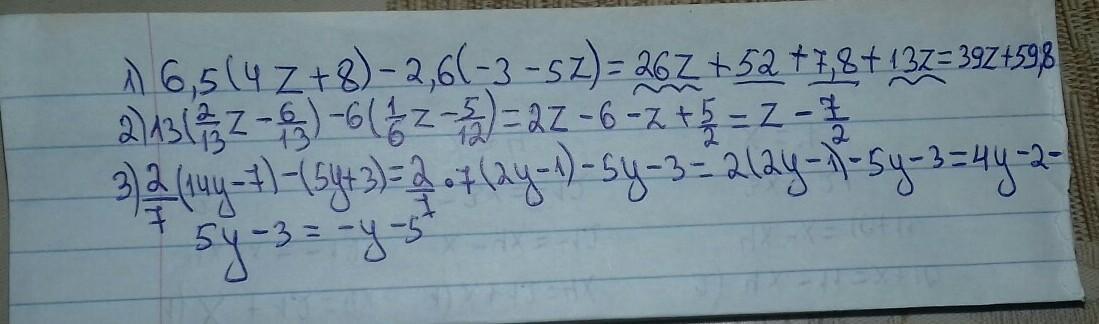 1) 6,5(4z+8)-2,6(-3-5z)=26z+52+7,8+13z=39z+59,8
2) 13(2/13z-6/13)-6(1/6z-5/12)=2z-6-z+5/2=z-7/2
3) 2/7(14y-7)-(5y+3)=2/7•7(2y-1)-5y-3=2(2y-1)-5y-3=4y-2-
5y-3=-y-5